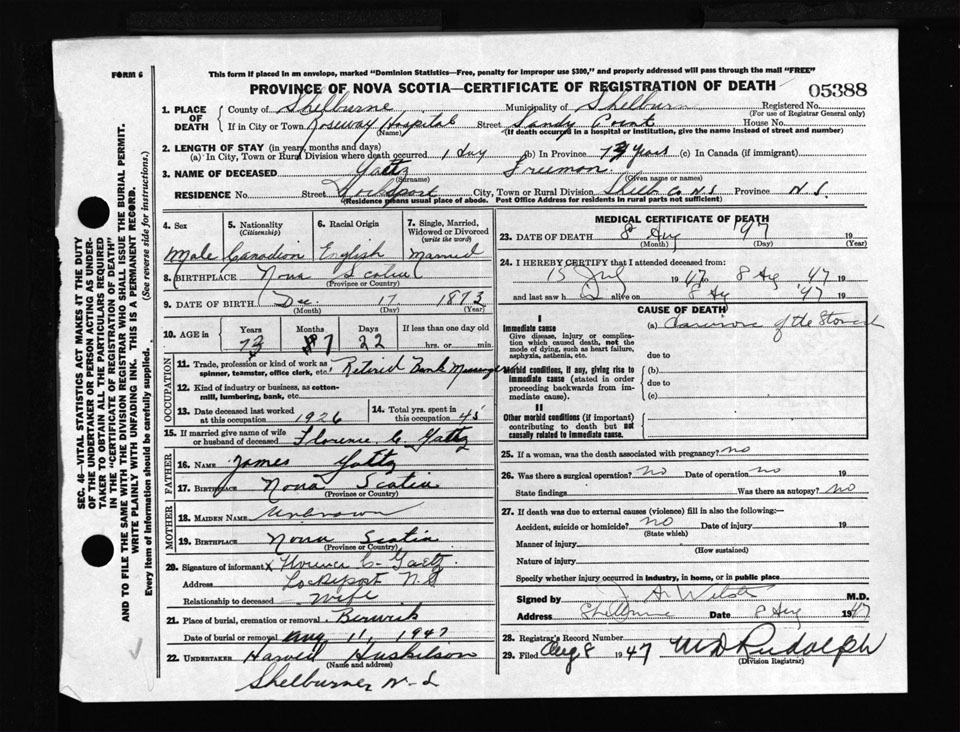 FORM 6
This form if placed in an envelope, marked "Dominion Statistics—Free, penalty for improper use $300," and properly addressed will pass through the mail "FREE"
PROVINCE OF NOVA SCOTIA—CERTIFICATE OF REGISTRATION OF DEATH
05388
1. PLACE OF DEATH
County of Shelburne Municipality of Shelburn Registered No.
(For use of Registrar General only)
If in City or Town Roseway Hospital Street Sandy Point House No.
(Name) (If death occurred in a hospital or institution, give the name instead of street and number)
2. LENGTH OF STAY (in years, months and days)
(a) In City, Town or Rural Division where death occurred 1 day (b) In Province 73 years (c) In Canada (if immigrant)
3. NAME OF DECEASED Gaetz Freeman
(Surname) (Given name or names)
RESIDENCE No. Street Lockeport City, Town or Rural Division Shelb Co N.S Province N.S.
(Residence means usual place of abode. Post Office Address for residents in rural parts not sufficient)
4. Sex Male
5. Nationality (Citizenship) Canadian
6. Racial Origin English
7. Single, Married, Widowed or Divorced (write the word) Married
8. BIRTHPLACE Nova Scotia
(Province or Country)
9. DATE OF BIRTH Dec. 17 1873
(Month) (Day) (Year)
10. AGE in Years Months Days If less than one day
73 7 22 hrs. or min.
OCCUPATION
11. Trade, profession or kind of work as spinner, teamster, office clerk, etc. Retired Bank Messenger
12. Kind of industry or business, as cotton-mill, lumbering, bank, etc.
13. Date deceased last worked at this occupation 1926
14. Total yrs. spent in this occupation 45
15. If married give name of wife or husband of deceased Florence C Gaetz
FATHER
16. NAME James Gaetz
17. BIRTHPLACE Nova Scotia
(Province or Country)
MOTHER
18. MAIDEN NAME Unknown
19. BIRTHPLACE Nova Scotia
(Province or Country)
20. Signature of informant x Florence C. Gaetz
Address Lockeport N.S
Relationship to deceased Wife
21. Place of burial, cremation or removal Berwick
Date of burial or removal Aug 11, 1947
22. UNDERTAKER Huskilson
(Name and address)
Shelburne N.S
MEDICAL CERTIFICATE OF DEATH
23. DATE OF DEATH 8 Aug '47 19
(Month) (Day) (Year)
24. I HEREBY CERTIFY that I attended deceased from:
15 Jul 1947 8 Aug '47 19
and last saw h alive on 8 Ag '47 19
CAUSE OF DEATH
I
Immediate cause
Give disease, injury or complication which caused death, not the mode of dying, such as heart failure, asphyxia, asthenia, etc.
(a) Carcinoma of the Stomach
due to
Morbid conditions, if any, giving rise to immediate cause (stated in order proceeding backwards from immediate cause).
(b)
due to
(c)
II
Other morbid conditions (if important) contributing to death but not causally related to immediate cause.
25. If a woman, was the death associated with pregnancy? no
26. Was there a surgical operation? no Date of operation no 19
State findings Was there an autopsy? no
27. If death was due to external causes (violence) fill in also the following:—
Accident, suicide or homicide? no Date of injury 19
(State which)
Manner of injury
(How sustained)
Nature of injury
Specify whether injury occurred in industry, in home, or in public place
Signed by M.D.
Address Shelburne Date 8 Aug 1947
28. Registrar's Record Number
29. Filed Aug 8 1947 MD Rudolph
(Division Registrar)
SEC. 46—VITAL STATISTICS ACT MAKES IT THE DUTY OF THE UNDERTAKER OR PERSON ACTING AS UNDERTAKER TO OBTAIN ALL THE PARTICULARS REQUIRED IN THE "CERTIFICATE OF REGISTRATION OF DEATH" AND TO FILE THE SAME WITH THE DIVISION REGISTRAR WHO SHALL ISSUE THE BURIAL PERMIT.
WRITE PLAINLY WITH UNFADING INK. THIS IS A PERMANENT RECORD.
Every item of information should be carefully supplied. (See reverse side for instructions.)